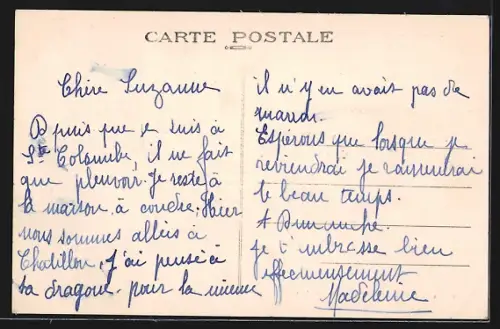 CARTE POSTALE
Chère Suzanne
Depuis que je suis à
Ste Colombe, il ne fait
que pleuvoir. Je reste à
la maison à coudre. Hier
nous sommes allés à
Chatillon. J'ai pensé à
ta dragone. pour la mienne
il n'y en avait pas de
marron.
Espérons que lorsque je
reviendrai je ramenrai
le beau temps.
A Dimanche.
je t'embrasse bien
affectueusement
Madeleine